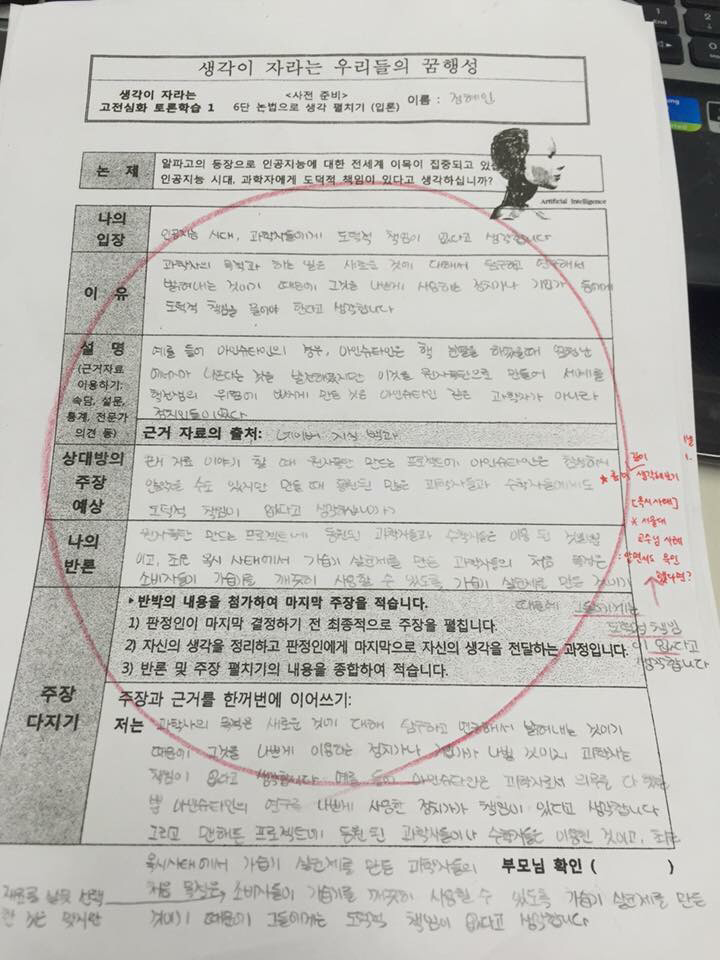 생각이 자라는 우리들의 꿈행성
생각이 자라는
고전심화 토론학습 1
<사전 준비>
6단 논법으로 생각 펼치기 (입론)
이름 : 정혜인
논 제
알파고의 등장으로 인공지능에 대한 전세계 이목이 집중되고 있습
인공지능 시대, 과학자에게 도덕적 책임이 있다고 생각하십니까?
Artificial Intelligence
나의
입장
인공지능 시대, 과학자들에게 도덕적 책임이 없다고 생각합니다
이 유
과학자의 목적과 하는 일은 새로운 것에 대해서 탐구하고 연구해서
밝혀내는 것이기 때문에 그것을 나쁘게 사용하는 정치가나 기업가 들에게
도덕적 책임을 물어야 한다고 생각합니다
설 명
(근거자료
이용하기:
속담, 설문,
통계, 전문가
의견 등)
예를 들어 아인슈타인의 경우, 아인슈타인은 핵 분열을 하였을때 엄청난
에너지가 나온다는 것을 발견해냈지만 이것을 원자폭탄으로 만들어 세계를
핵전쟁의 위험에 빠지게 만든 것은 아인슈타인 같은 과학자가 아니라
정치인들이었다
근거 자료의 출처: 네이버 지식 백과
상대방의
주장
예상
근거 자료 이야기 할 때 원자폭탄 만드는 프로젝트에 아인슈타인은 참여하지
않았을 수도 있지만 만들 때 동원된 많은 과학자들과 수학자들에게도
도덕적 책임이 없다고 생각하십니까?
나의
반론
원자폭탄 만드는 프로젝트에 동원된 과학자들과 수학자들은 이용 된 것뿐
이고, 최근 옥시 사태에서 가습기 살균제를 만든 과학자들의 처음 목적은
소비자들이 가습기를 깨끗히 사용할 수 있도록 가습기 살균제를 만든 것이기
때문에 그들에게는
도덕적 책임
이 없다고
생각합니다
깊이
생각해보기
[옥시사례]
* 서울대
교수님 사례
: 알면서도 묵인
했다면?
주장
다지기
▸반박의 내용을 첨가하여 마지막 주장을 적습니다.
1) 판정인이 마지막 결정하기 전 최종적으로 주장을 펼칩니다.
2) 자신의 생각을 정리하고 판정인에게 마지막으로 자신의 생각을 전달하는 과정입니다.
3) 반론 및 주장 펼치기의 내용을 종합하여 적습니다.
주장과 근거를 한꺼번에 이어쓰기:
저는 과학자의 목적은 새로운 것에 대해 탐구하고 연구해서 밝혀내는 것이기
때문에 그것을 나쁘게 이용하는 정치가나 기업가가 나쁠 것이지 과학자는
책임이 없다고 생각합니다 예를 들어 아인슈타인은 과학자로서 의무를 다 했을
뿐 아인슈타인의 연구를 나쁘게 사용한 정치가가 책임이 있다고 생각합니다
그리고 맨해튼 프로젝트에 동원 된 과학자들이나 수학자들은 이용된 것이고, 최근
옥시사태에서 가습기 살균제를 만든 과학자들의
부모님 확인 ( )
처음 목적은, 소비자들이 가습기를 깨끗히 사용할 수 있도록 가습기 살균제를 만든
것이기 때문에 그들에게는 도덕적 책임이 없다고 생각합니다
재료를 잘못 선택
한 것은 맞지만